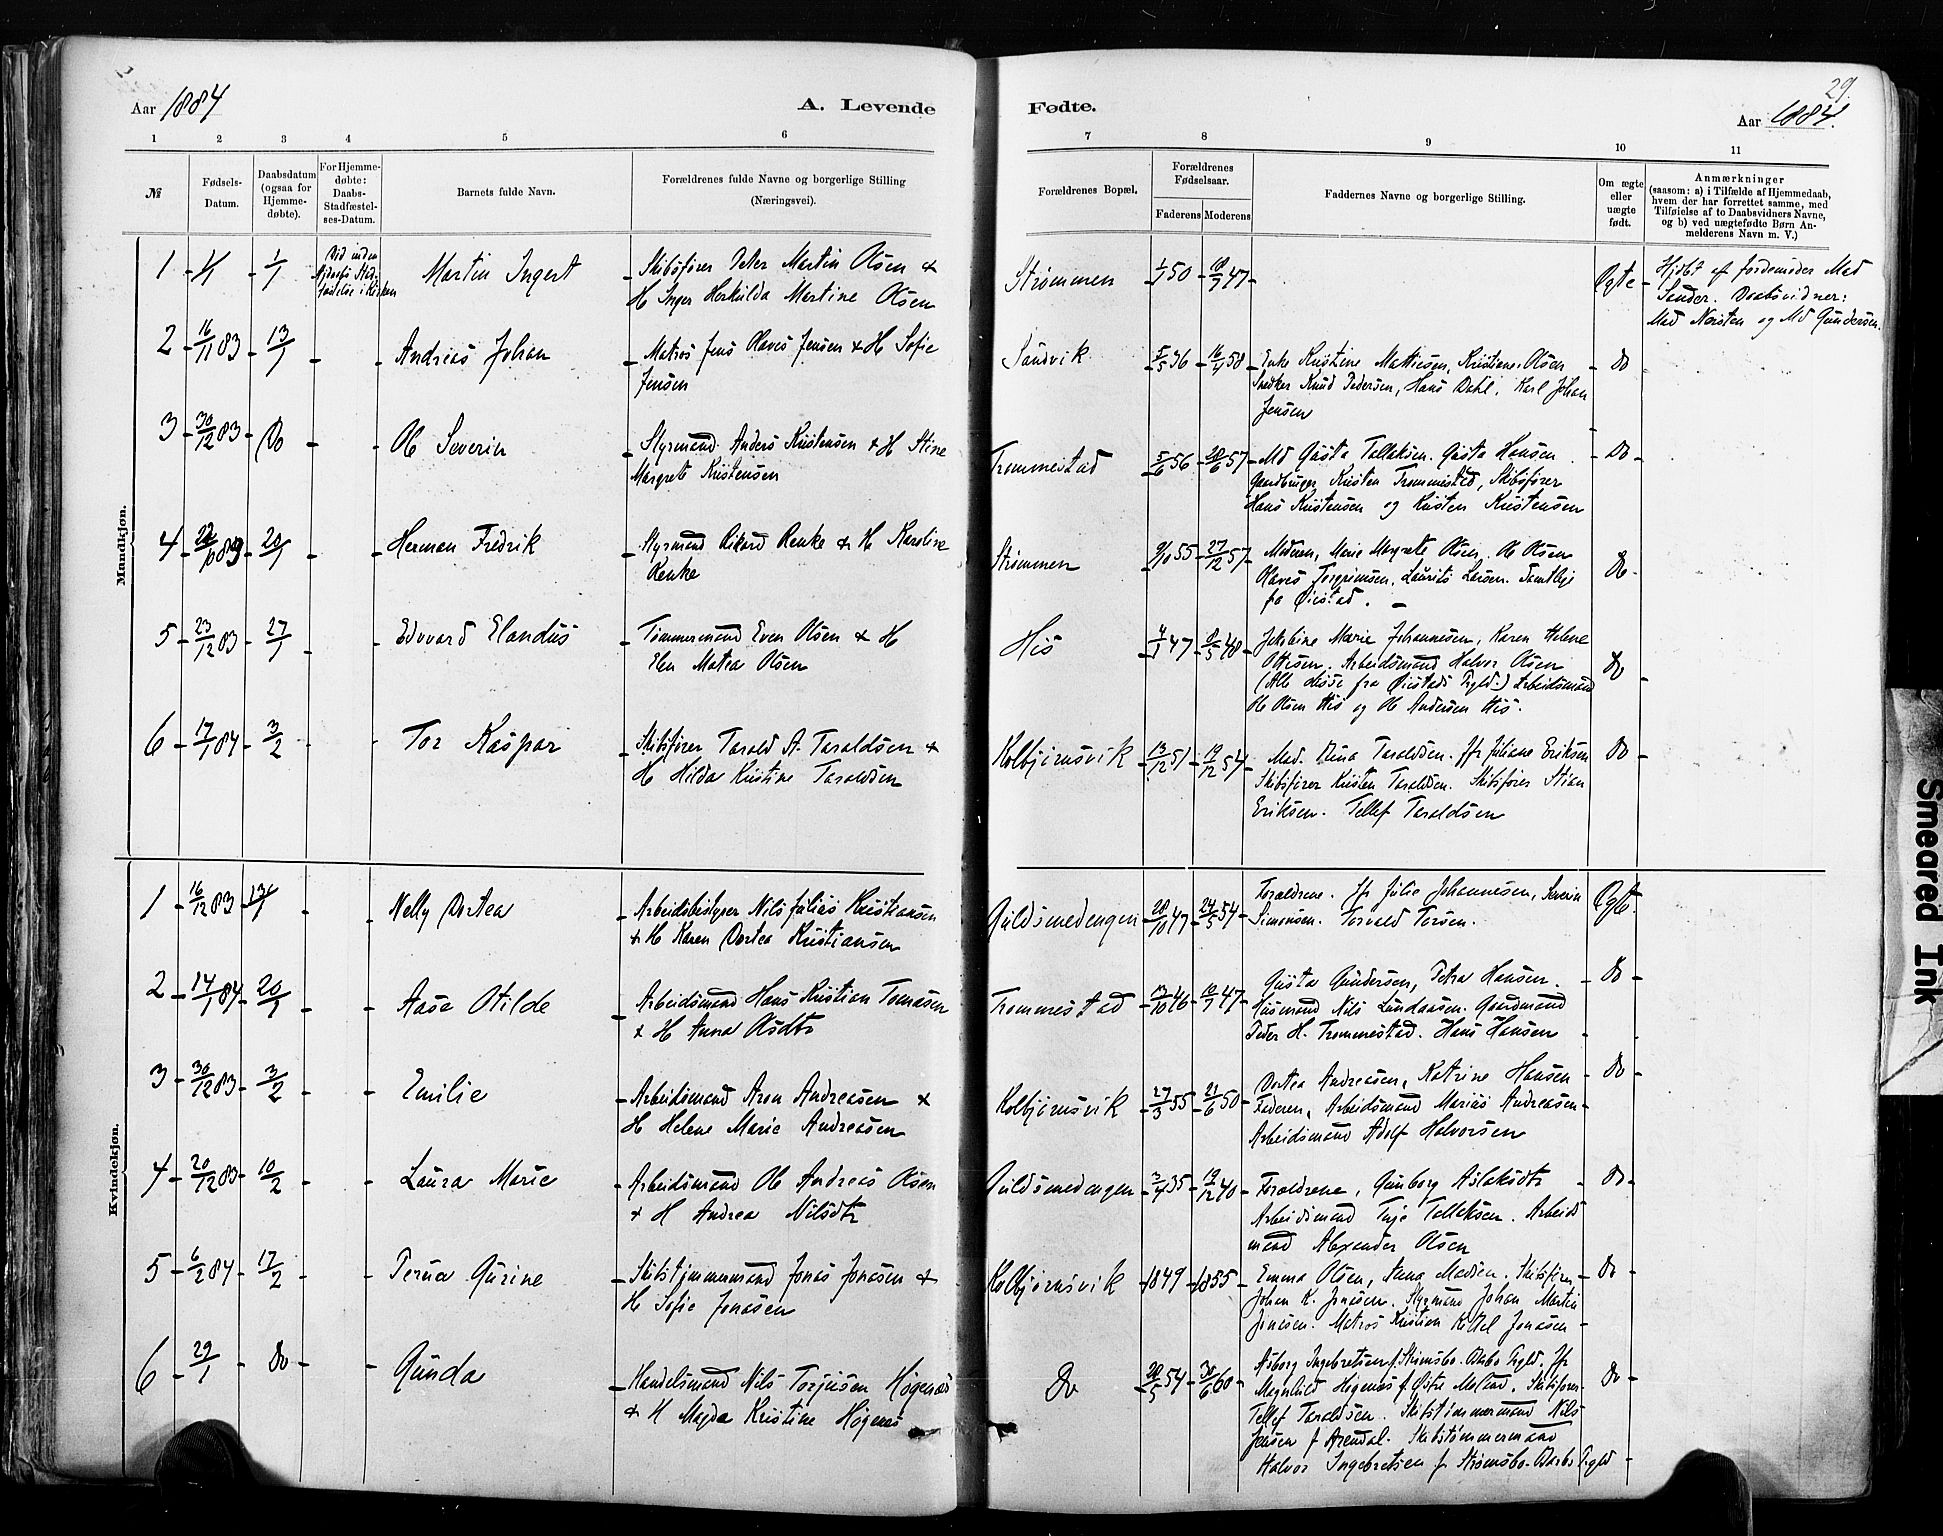 29.
Aar 1884
A. Levende
Fødte.
Aar 1884.
1 2 3 4 5 6
7 8 9 10 11
№
Fødsels-
Datum.
Daabsdatum
(ogsaa for
Hjemme-
døbte).
For Hjemme-
døbte:
Daabs-
Stadfæstel-
ses-Datum.
Barnets fulde Navn.
Forældrenes fulde Navne og borgerlige Stilling
(Næringsvei).
Forældrenes Bopæl.
Forældrenes
Fødselsaar.
Faderens Moderens
Faddernes Navne og borgerlige Stilling.
Om ægte
eller
uægte
født.
Anmærkninger
(saasom: a) i Tilfælde af Hjemmedaab,
hvem der har forrettet samme, med
Tilføielse af to Daabsvidners Navne,
og b) ved uægtefødte Børn An-
melderens Navn m. V.)
Mandkjøn.
1 1/1 1/1 Martin Ingert
Skibsfører Peter Martin Olsen &
H Inger Herkulda Martine Olsen
Strømmen 50 47 Ægte
Hjdbt af Jordemoder Mad
Sander. Daabsvidner:
Mad Nersten og Md Gundersen.
2 16/11 83 13/1 Andreas Johan
Matros Jens Olaves Jensen & H Sofie
Jensen
Sandvik 5/5 36 16/1 58
Enke Kristine Mathiesen, Kristiane Olsen
Knud Pedersen, Hans Dahl. Karl Johan
Jensen
Do
3 30/12 83 Do Ole Severin
Styrmand Anders Kristensen & H Stine
Margrete Kristensen
Trommestad 5/6 56 28/6 57
Md Gusta Tellaksen. Gusta Hansen
Gaardbruger Kristen Trommestad, Skibsfører
Hans Kristensen og Kristen Kristensen
Do
4 20/1 Herman Fredrik
Styrmand Rikard Renke & H Karoline
Renke
Strømmen 9/10 55 27/12 57
Moderen, Marie Margrete Olsen. Ole Olsen
Olaves Torgrimsen, Laurits Larsen. Samtlige
fra Øiestad.
Do
5 23/12 83 27/1 Edvard Elandus
Tømmermand Even Olsen & H
Elen Matea Olsen
His 4/1 47 8/5 48
Jakobine Marie Johannesen, Karen Helene
Ottesen. Arbeidsmand Halvor Olsen
(Alle disse fra Øiestads Prgld.) Arbeidsmand
Ole Olsen His og Ole Andersen His.
Do
6 17/1 84 3/2 Tor Kaspar
Skibsfører Tarald A. Taraldsen &
H Hilda Kristine Taraldsen
Kolbjørnsvik 13/12 51 19/12 54
Mad. Taraldsen. Jfr Juliane Eriksen
Skibsfører Kristen Taraldsen. Skibsfører Stian
Eriksen. Tellef Taraldsen
Do
Kvindekjøn.
1 16/12 83 13/1 Nelly Dortea
Arbeidsbestyrer Nils Julius Kristiansen
& H Karen Dortea Kristiansen
Guldsmedengen 28/10 47 24/5 54
Forældrene. Jfr Julie Johannesen, Severin
Simonsen. Torvald Torsen.
Ægte.
2 14/1 84 20/1 Aase Otilde
Arbeidsmand Hans Kristian Tomasen
& H Anna Olsdtr
Trommestad 13/10 46 10/7 47
Gusta Gundersen, Petra Hansen.
Husmand Nils Lundaasen. Gaardmand
Peder H. Trommestad. Hans Hansen
Do
3 30/12 83 3/2 Emilie
Arbeidsmand Aron Andreasen &
H Helene Marie Andreasen
Kolbjørnsvik 27/3 55 21/6 50
Dortea Andreasen, Katrine Hansen
Faderen, Arbeidsmand Marius Andreasen
Arbeidsmand Adolf Halvorsen
Do
4 20/12 83 10/2 Laura Marie
Arbeidsmand Ole Andreas Olsen
& H Andrea Nilsdtr
Guldsmedengen 3/4 35 19/12 40
Forældrene, Gunborg Aslaksdtr
Arbeidsmand Terje Tellaksen. Arbeids
mand Alexander Olsen
Do
5 6/2 84 17/2 Gurine
Skibstømmermand Jonas Jonasen &
H Sofie Jonasen
Kolbjørnsvik 1849 1855
Emma Olsen, Anna Madsen. Skibsfører
Johan K. Jonasen. Styrmand Johan Martin
Jonasen. Matros Kristian Kittel Jonasen
Do
6 29/1 Do Gunda
Handelsmand Nils Torjusen Høgenæs
& H Magda Kristine Høgenæs
Do 28/5 54 30/6 60
Asborg Ingebretsen f. Strømsbo. Barbo Prgld. Jfr
Magnhild Høgenæs f. Østre Moland. Skibsfører
Tellef Taraldsen. Skibstømmermand Nils
Jensen f Arendal. Skibstømmermand
Halvor Ingebretsen f. Strømsbo. Barbo Prgld
Do
Smeared Ink